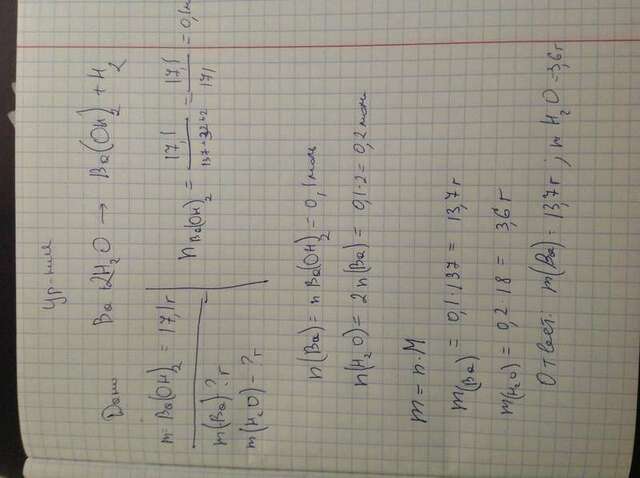 Ур-ние
Дано
Ba + 2H₂O → Ba(OH)₂ + H₂
m Ba(OH)₂ = 17,1 г
m(Ba) - ? г
m(H₂O) - ? г
n Ba(OH)₂ = 17,1 / 137+32+2 = 17,1 / 171 = 0,1 м
n(Ba) = n Ba(OH)₂ = 0,1 моль
n(H₂O) = 2n(Ba) = 0,1·2 = 0,2 моль
m = n·M
m(Ba) = 0,1·137 = 13,7 г
m(H₂O) = 0,2·18 = 3,6 г
Ответ: m(Ba) - 13,7 г; m H₂O - 3,6 г